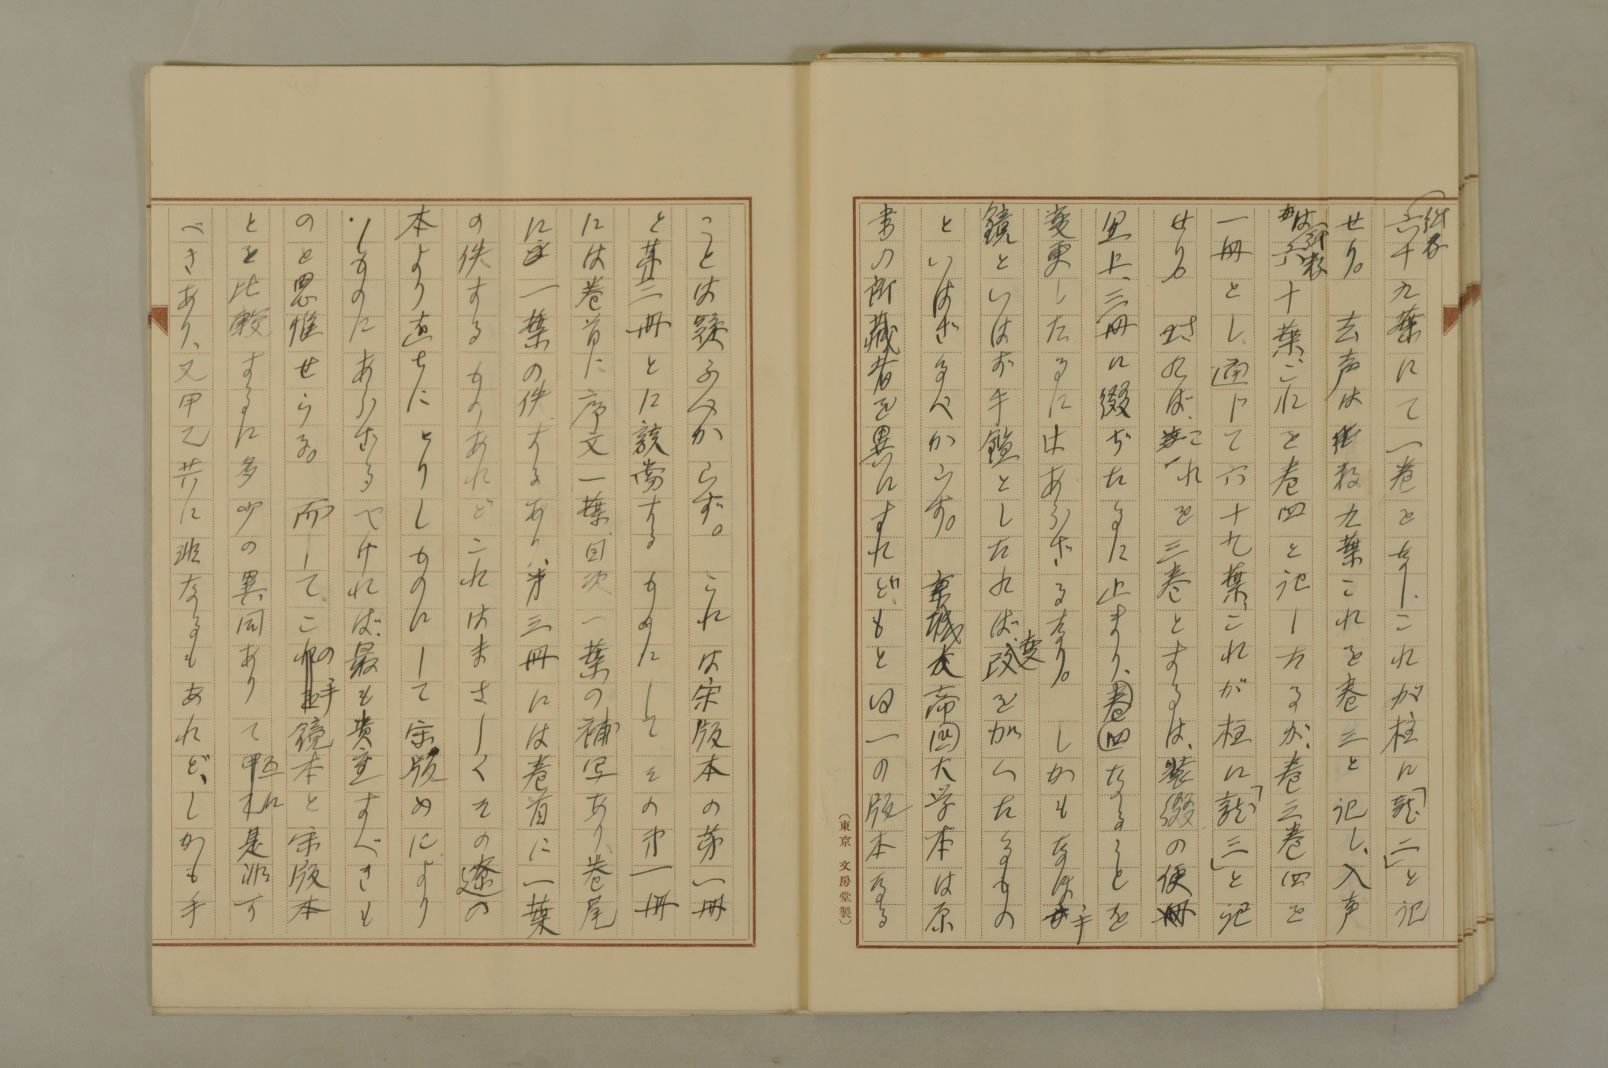 六十九葉にて一巻となし、これが柱に「龍二」と記
せり。去声は紙数九葉これを巻三と記し、入声
は紙数六十葉、これを巻四と記したるが、巻三巻四を
一冊とし、通じて六十九葉、これが柱に「龍三」と記
せり。されば、これを三巻とするは、装綴の便
宜上、三冊に綴ぢたるに止まり、巻四なることを
変更したるにはあらざるなり。しかもなほ手
鏡といはず手鑑としたれば改変を加へたるもの
といはざるべからず。京城帝国大学本は原
書の所蔵者を異にすれども、もと同一の版本なる
ことは疑ふべからず。これは宋版本の第一冊
と第二冊とに該当するものにしてその第一冊
には巻首に序文一葉、目次一葉の補写あり、巻尾
に一葉の佚するあり、第三冊には巻首に一葉
の佚するものあれど、これはまさしくその遼の
本より直ちにとりしものにして宋版めにより
しものにあらざるべければ、最も貴重すべきも
のと思惟せらる。而して、この手鏡本と宋版本
とを比較するに多少の異同ありて互に是非す
べきあり、又甲乙共に非なるもあれど、しかも手
(東京 文房堂製)